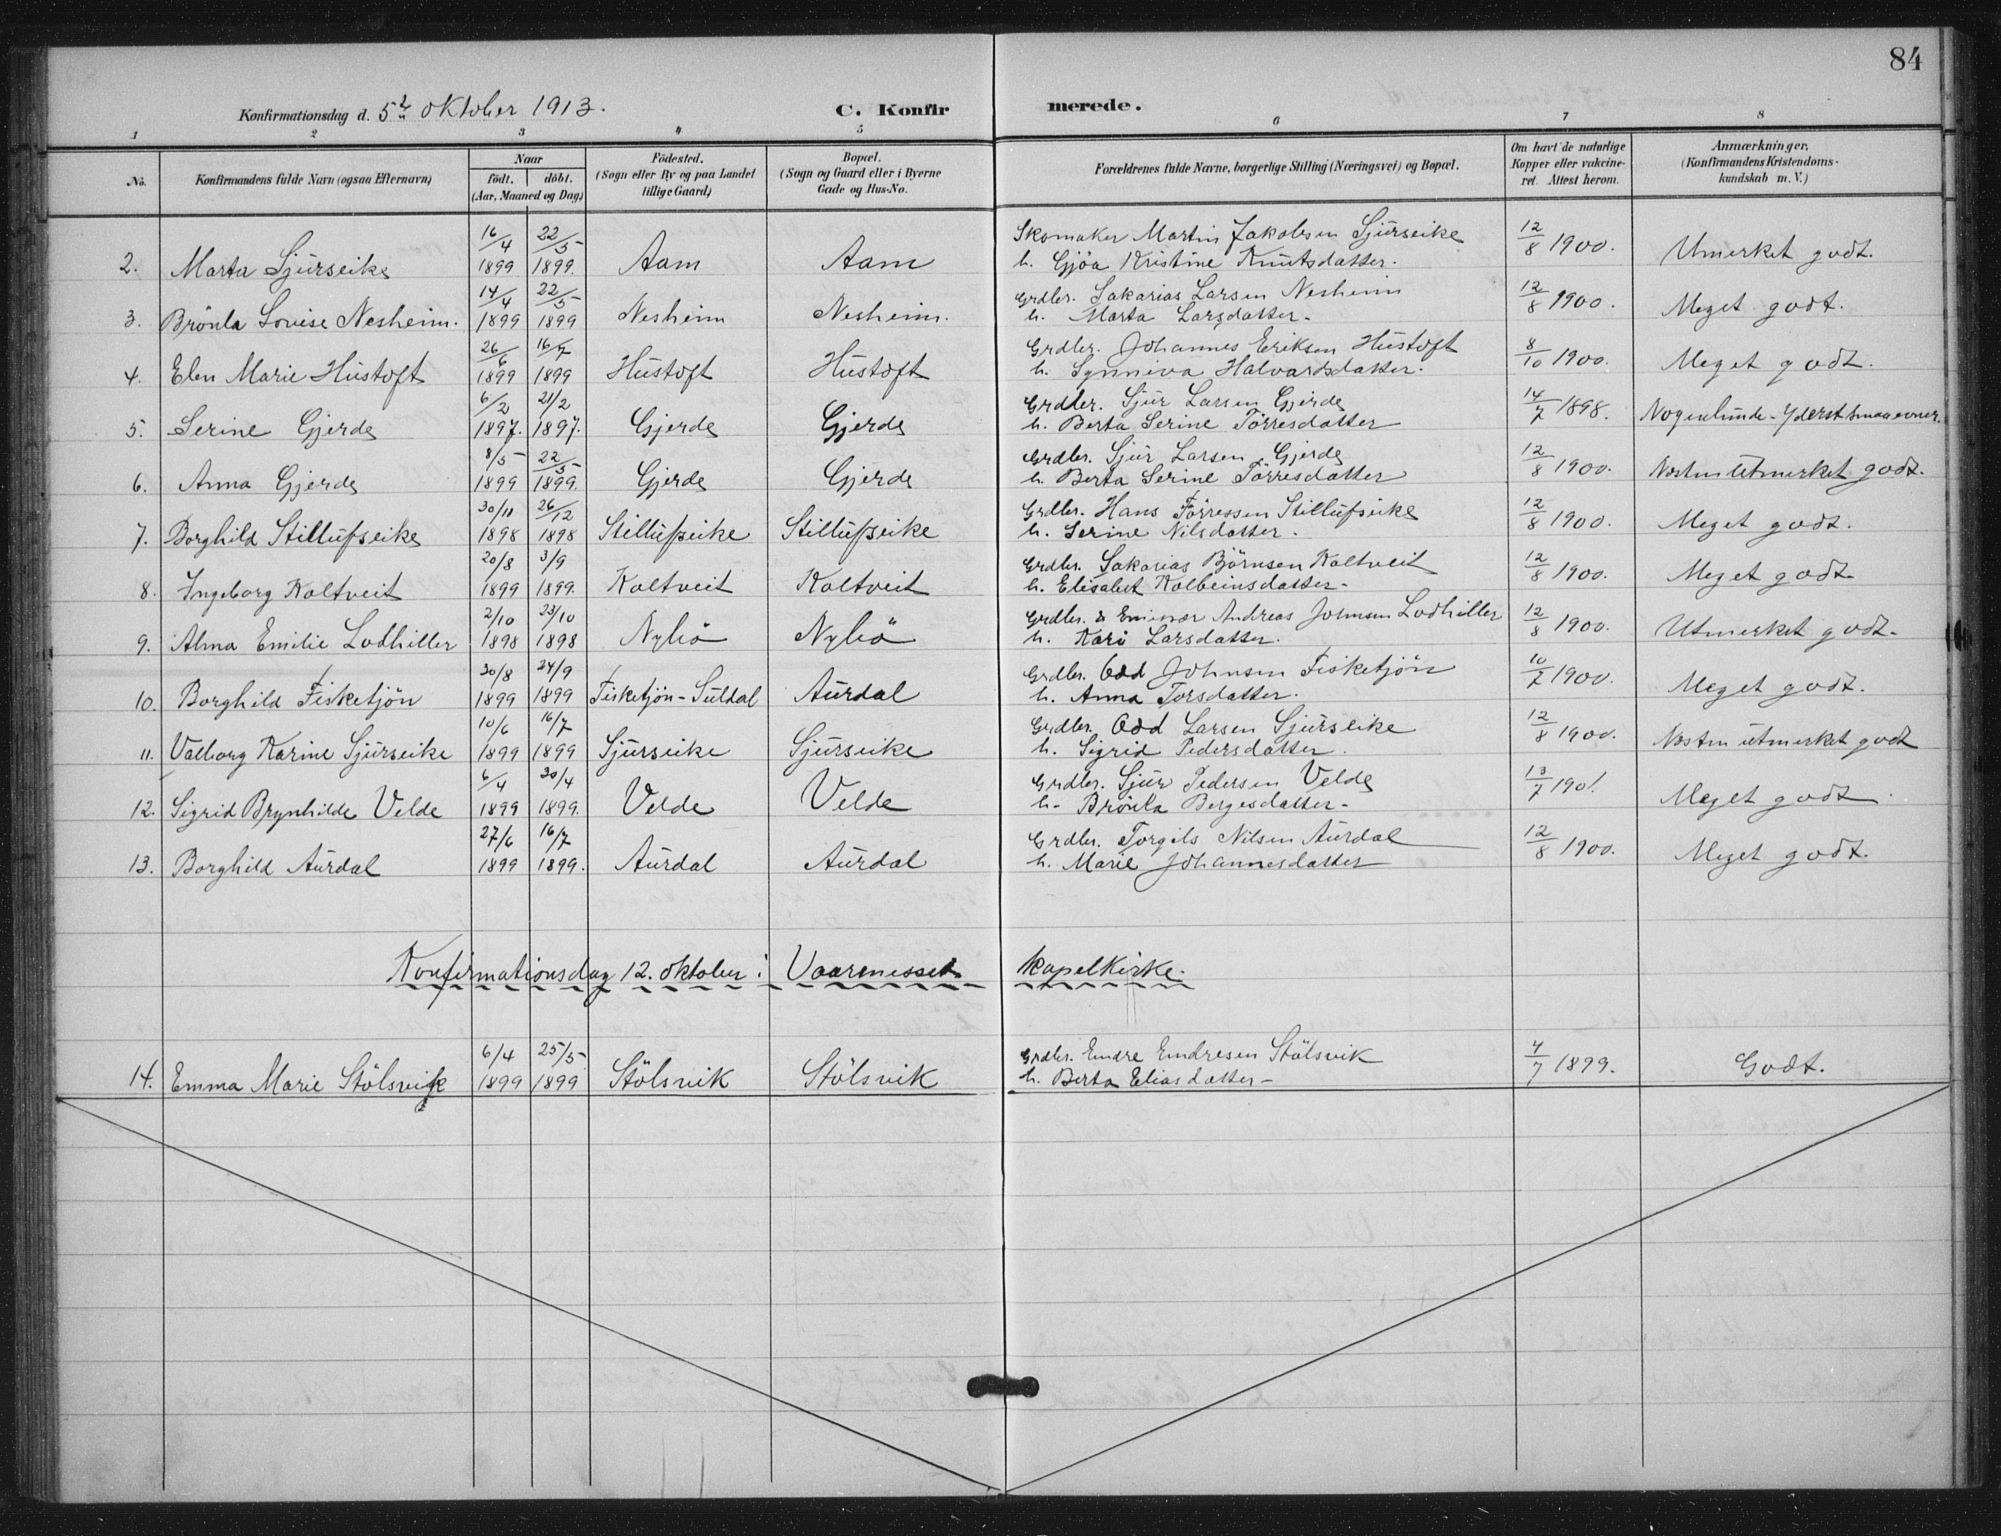 84
Konfirmationsdag d. 5te oktober 1913. C. Konfirmerede.
1 2 3 4 5 6 7 8
No. Konfirmandens fulde Navn (ogsaa Efternavn) Naar født. døbt. (Aar, Maaned og Dag) Fødested. (Sogn eller By og paa Landet tillige Gaard) Bopæl. (Sogn og Gaard eller i Byerne Gade og Hus-No. Forældrenes fulde Navne, borgerlige Stilling (Næringsvei) og Bopæl. Om havt de naturlige Kopper eller vakcineret. Attest herom. Anmærkninger. (Konfirmandens Kristendomskundskab m. V.)
2. Marta Sjurseike 16/4 1899 22/5 1899. Aam Aam Skomaker Martin Jakobsen Sjurseike 12/8 1900. Utmerket godt.
h. Gjöa Kristine Knutsdatter.
3. Brönla Lovise Nesheim. 14/4 1899 22/5 1899 Nesheim Nesheim. Grdbr. Sakarias Larsen Nesheim 12/8 1900. Meget godt.
h. Marta Larsdatter.
4. Elen Marie Hustoft 26/6 1899 16/7 1899 Hustoft Hustoft Grdbr. Johannes Eriksen Hustoft 8/10 1900. Meget godt.
h. Synneva Halvardsdatter.
5. Serine Gjerde 6/2 1897. 21/2 1897. Gjerde Gjerde Grdbr. Sjur Larsen Gjerde 14/7 1898. Nogenlunde - Yderst smaa evner.
h. Berta Serine Törresdatter
6. Anna Gjerde 8/5 1899 22/5 1899 Gjerde Gjerde Grdbr. Sjur Larsen Gjerde 12/8 1900. Næsten utmerket godt.
h. Berta Serine Törresdatter
7. Borghild Stillufseike 30/11 1898 26/12 1898 Stillufseike Stillufseike Grdbr. Hans Törressen Stillufseike 12/8 1900. Meget godt.
h. Serine Nilsdatter.
8. Ingeborg Kaltveit 20/8 1899 3/9 1899. Kaltveit Kaltveit Grdbr. Sakarias Björnsen Kaltveit 12/8 1900. Meget godt.
h. Elisabet Kolbeinsdatter.
9. Alma Emilie Lodhiller 2/10 1898 23/10 1898 Nybö Nybö Grdbr. & Andreas Johnsen Lodhiller 12/8 1900. Utmerket godt.
h. Kari Larsdatter.
10. Borghild Fisketjön 30/8 1899 24/9 1899 Fisketjön - Suldal Aurdal Grdbr. Odd Johnsen Fisketjön 10/7 1900. Meget godt.
h. Anna Torsdatter.
11. Valborg Karine Sjurseike 10/6 1899 16/7 1899 Sjurseike Sjurseike Grdbr. Odd Larsen Sjurseike 12/8 1900. Næsten utmerket godt
h. Sigrid Pedersdatter.
12. Sigrid Brynhilde Velde 6/4 1899 30/4 1899. Velde Velde Grdbr. Sjur Pedersen Velde 13/7 1901. Meget godt.
h. Brönla Bergesdatter.
13. Borghild Aurdal 27/6 1899 16/7 1899. Aurdal Aurdal Grdbr. Torgils Nilsen Aurdal 12/8 1900. Meget godt.
h. Marie Johannesdatter
Konfirmationsdag 12. oktober i Vaarmesset kapelkirke.
14. Emma Marie Stölsvik 6/4 1899 25/5 1899 Stölsvik Stölsvik Grdbr. Endre Endresen Stölsvik 4/7 1899. Godt.
h. Berta Eliasdatter